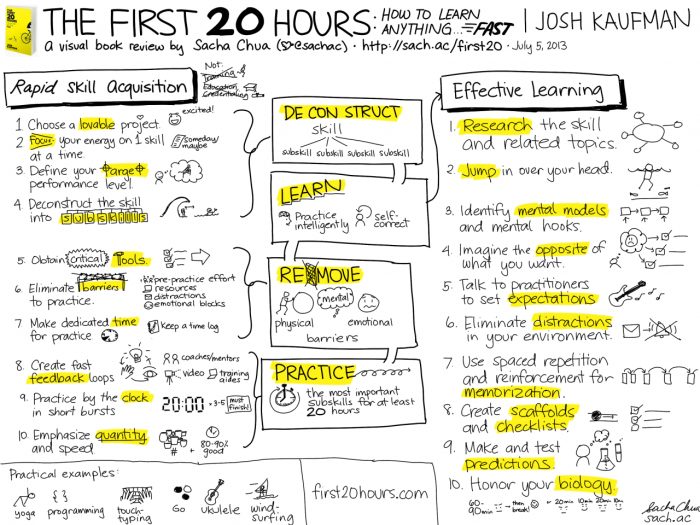 THE FIRST 20 HOURS: HOW TO LEARN ANYTHING... FAST | JOSH KAUFMAN
a visual book review by Sacha Chua (@sachac) · http://sach.ac/first20 · July 5, 2013
Rapid Skill Acquisition
Not:
Training
Education
Credentialing
1. Choose a lovable project.
excited!
2. Focus your energy on 1 skill
at a time.
someday/
maybe
3. Define your target
performance level.
4. Deconstruct the skill
into subskills
5. Obtain critical tools.
6. Eliminate barriers
to practice.
pre-practice effort
resources
distractions
emotional blocks
7. Make dedicated time
for practice
Keep a time log
8. Create fast
feedback loops
coaches/mentors
video
training
aides
9. Practice by the clock
in short bursts
20:00 × 3-5
must
finish!
10. Emphasize quantity
and speed
#
+
80-90%
good
DECONSTRUCT
skill
subskill subskill subskill subskill
LEARN
Practice
intelligently
self-
correct
REMOVE
mental
physical
emotional
barriers
PRACTICE
the most important
subskills for at least
20 hours
Effective Learning
1. Research the skill
and related topics.
2. Jump in over your head.
3. Identify mental models
and mental hooks.
4. Imagine the opposite of
what you want.
5. Talk to practitioners
to set expectations
6. Eliminate distractions
in your environment.
7. Use spaced repetition
and reinforcement for
memorization.
8. Create scaffolds
and checklists.
9. Make and test
predictions.
10. Honor your biology.
60-
90 min
then
break!
or 20min 10min 20min 10m
Practical examples:
yoga
{ }
programming
touch-
typing
Go
ukulele
wind-
surfing
first20hours.com
Sacha Chua
sach.ac